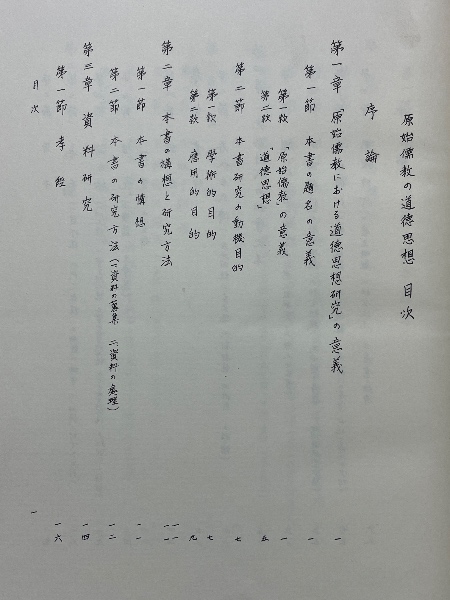 原始儒教の道德思想 目次
序論
第一章 「原始儒教における道德思想研究」の意義 一
第一節 本書の題名の意義 一
第一款 「原始儒教」の意義 一
第二款 「道德思想」 五
第二節 本書研究の動機目的 七
第一款 學術的目的 七
第二款 應用的目的 九
第二章 本書の構想と研究方法 一一
第一節 本書の構想 一一
第二節 本書の研究方法(一、資料の蒐集 二、資料の處理) 一二
第三章 資料研究 一四
第一節 孝經 一六
目次 一